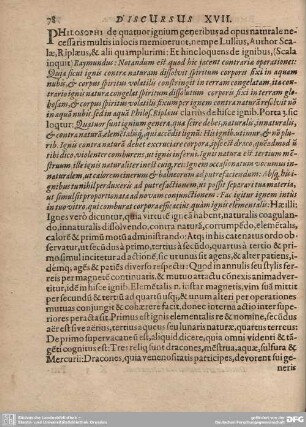 78 DISCURSUS XVII.
PHILOSOPHI de quatuor ignium generibus ad opus naturale ne-
cessarijs multis in locis meminerūt, nempe Lullius, Author Sca-
læ, Riplæus, & alii quamplurimi: Et hoc loquens de ignibus, (Scala
inquit) Raymundus: Notandum est quod hic jacent contraria operationes:
Quia sicut ignis contra naturam dissolvit spiritum corporis fixi in aquam
nubis & corpus spiritus volatilis constringit in terram congelatam, ita con-
trario ignis naturæ congelat spiritum dissolutum corporis fixi in terram glo-
bosam, & corpus spiritus volatilis fixum per ignem contra naturā resolvit nō
in aquā nubis, sed in aquā Philos. Riplæus clarius de hisce ignib. Porta 3. sic
loquitur: Quatuor sunt ignium genera, qua scire debes, naturalis, innaturalis,
& contra naturā, elemētalisq́; qui accēdit lignū: His ignib. utimur, & nō plu-
rib. Ignis contra naturā debet excruciare corpora, ipse est draco,
violenter comburens, ut ignis inferni. Ignis naturæ est tertium mēst-
ruum,
naturalem,
ignibus tu nihil perduxeris ad putrefactionem,
ut simul sint proportionata ad novam conjunctionem: Fac igitur ignem intùs
in tuo vitro, qui comburat corpora efficacius, quàm ignis elementalis: Hæ illi:
Ignes verò dicuntur, quia virtutē igneā habent, naturalis coagulan-
do, innaturalis dissolvendo, contra naturā, corrumpēdo, elemētalis,
calorē & primū motū administrando: Atq; in his catenatus ordo ob-
servatur, ut secūdus à primo, tertius à secūdo, quartus à tertio & pri-
mo simul incitetur ad actionē, sic ut unus sit agens, & alter patiens, i-
demq́; agēs & patiēs diverso respectu: Quod in annulis seu stylis fer-
reis per magnetē continuatis, & mutuo attactu cōnexis animad ver-
titur, idem in hisce ignib. Elemētalis n. instar magnetis, vim suā mittit
per secundū & tertiū ad quartū usq́; & unum alteri per operationes
mutuas conjungit & cohærere facit, donec interna actio inter superi-
ores peracta sit. Primus est ignis elementalis re & nomine, secūdus
aër est sive aërius, tertius aqueus seu lunaris naturæ, quartus terreus:
De primo supervacaneū est, aliquid dicere, quia omni videnti & tā-
gēti cognitus est: Tres reliqui sunt dracones, mēstrua, aquæ, sulfura &
Mercurii: Dracones, quia venenositatis participes, devorent sui ge-
neris